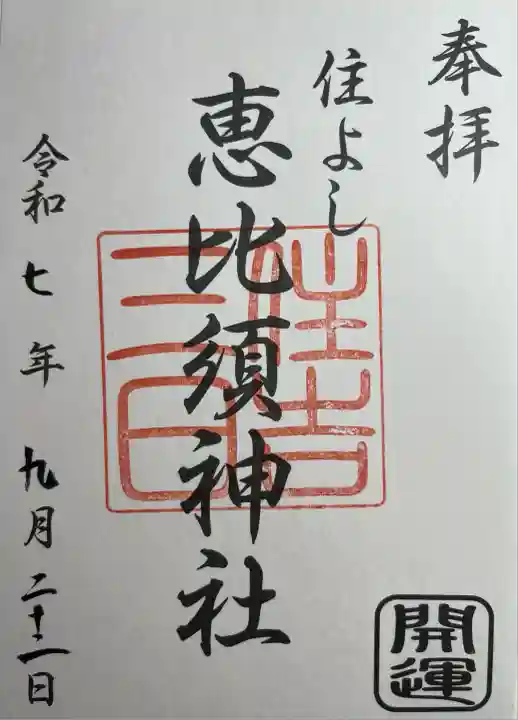 奉拝
住よし
恵比須神社
令和七年九月二十二日
開運